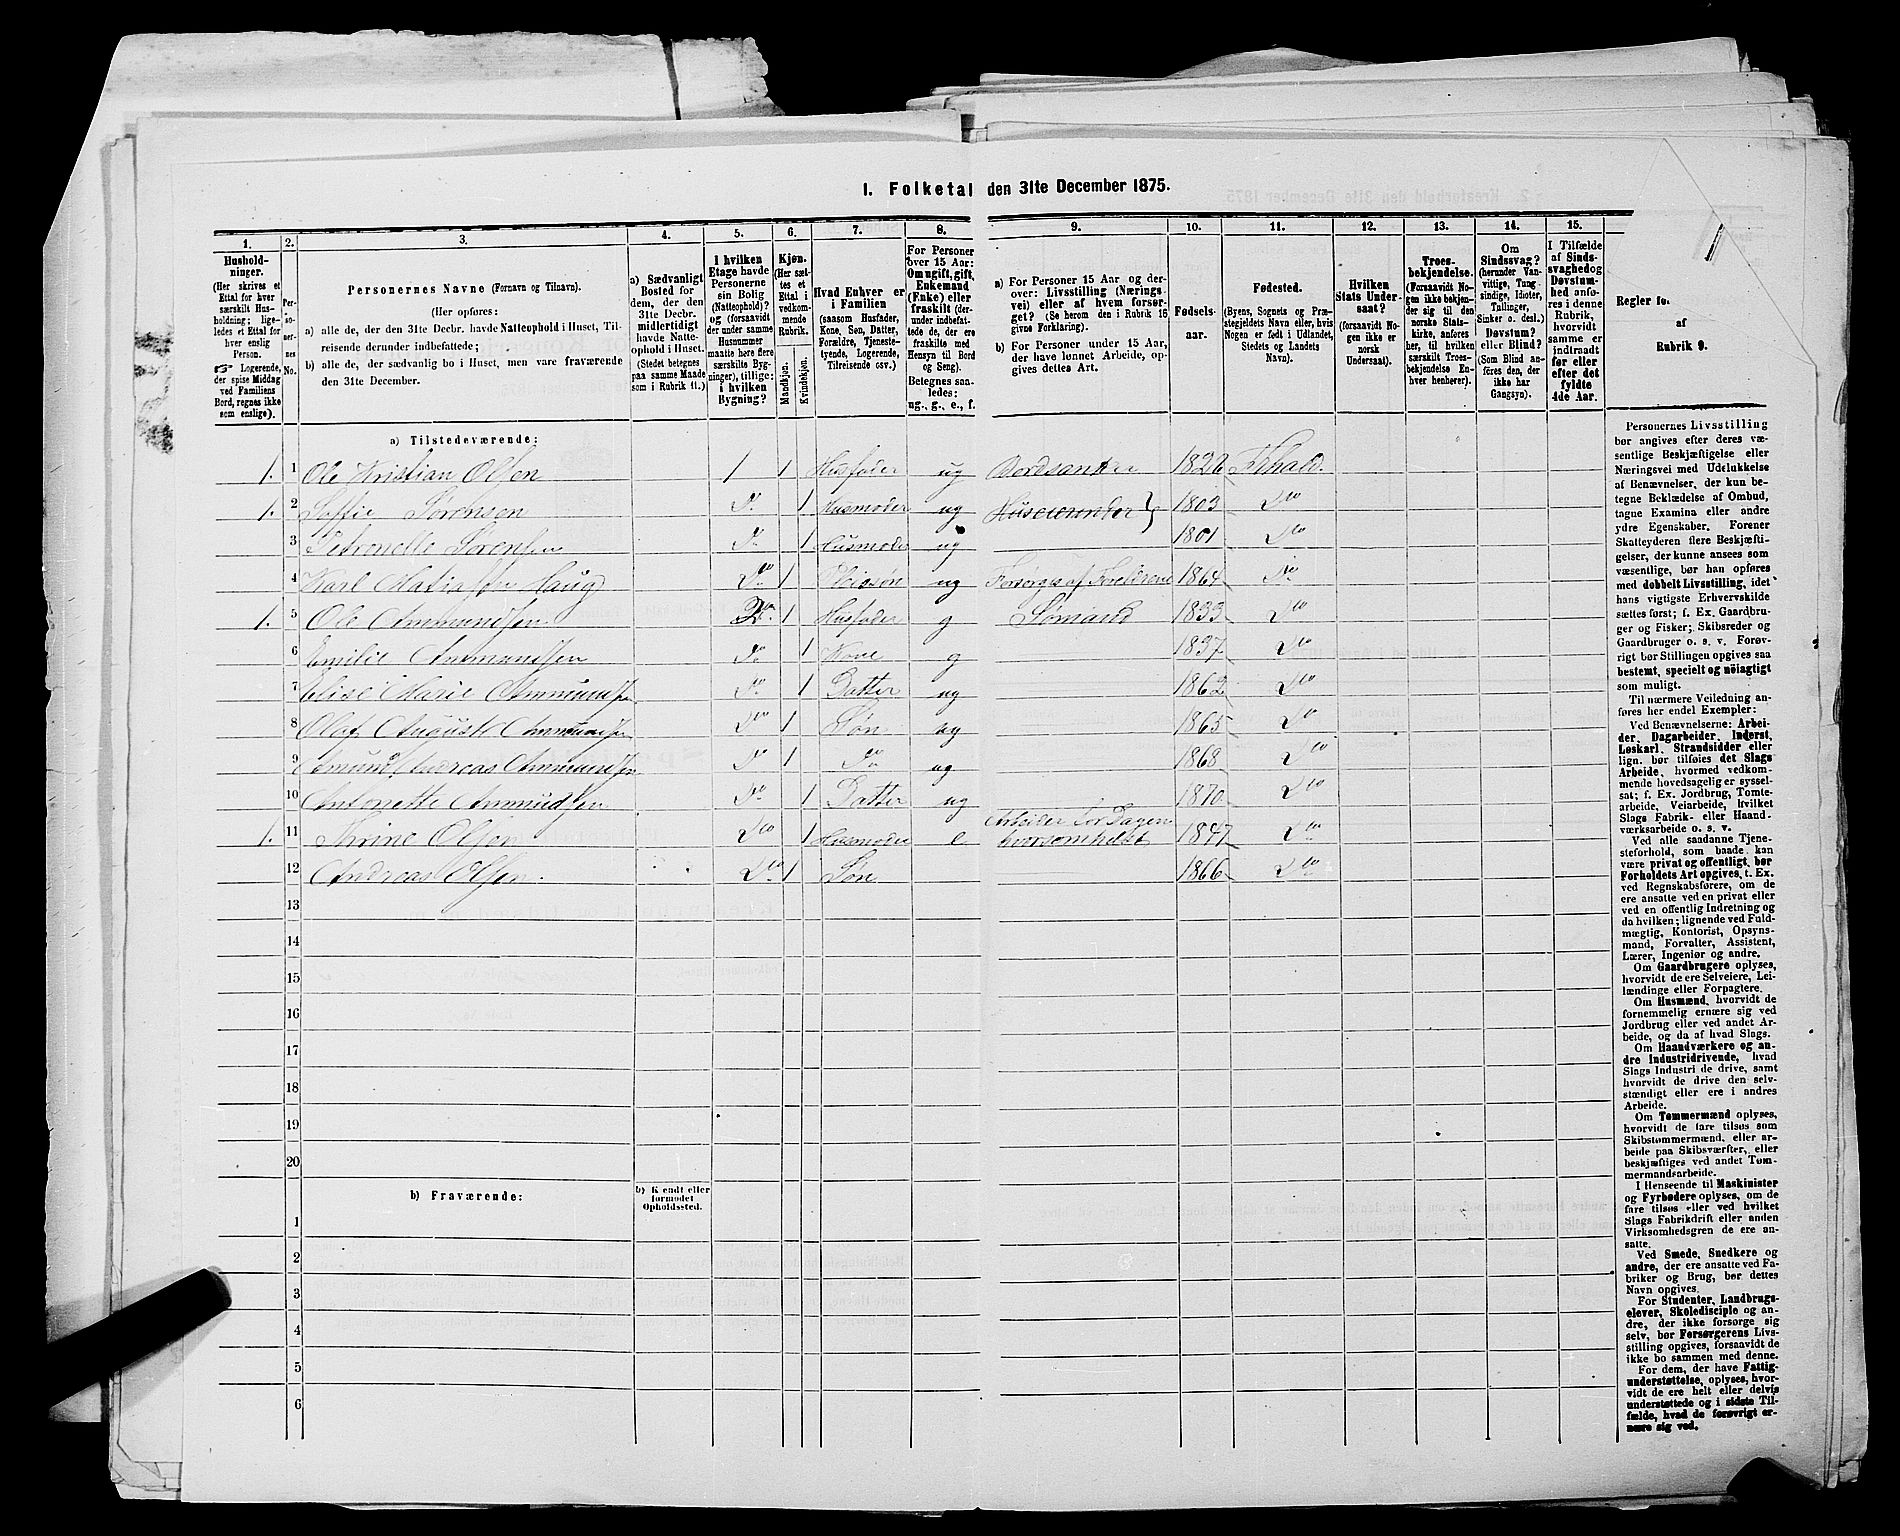 1. Folketal den 31te December 1875.
1. 2. 3. 4. 5. 6. 7. 8. 9. 10. 11. 12. 13. 14. 15.
Hushold-
ninger.
(Her skrives et
Ettal for hver
særskilt Hus-
holdning; lige-
ledes et Ettal for
hver enslig
Person.
Logerende,
der spise Middag
ved Familiens
Bord, regnes ikke
som enslige).
Per-
so-
ner-
nes
No.
Personernes Navne (Fornavn og Tilnavn).
(Her opføres:
a) alle de, der den 31te Decbr. havde Natteophold i Huset, Til-
reisende derunder indbefattede;
b) alle de, der sædvanlig bo i Huset, men vare fraværende
den 31te December.
a) Sædvanligt
Bosted for
dem, der den
31te Decbr.
midlertidigt
havde Natte-
ophold i Huset.
(Stedet betegnes
paa samme Maade
som i Rubrik 11.)
I hvilken
Etage havde
Personerne
sin Bolig
(Natteophold)?
og (forsaavidt
der under samme
Husnummer
maatte høre flere
særskilte Byg-
ninger), tillige:
i hvilken
Bygning?
Kjøn.
(Her sæt-
tes et
Ettal i
vedkom-
mende
Rubrik.
Mandkjøn.
Kvindekjøn.
Hvad Enhver er
i Familien
(saasom Husfader,
Kone, Søn, Datter,
Forældre, Tjeneste-
tyende, Logerende,
Tilreisende osv.)
For Personer
over 15 Aar:
Om ugift, gift,
Enkemand
(Enke) eller
fraskilt (der-
under indbefat-
tede de, der ere
fraskilte med
Hensyn til Bord
og Seng).
Betegnes saa-
ledes;
ug., g., e., f.
a) For Personer 15 Aar og der-
over: Livsstilling (Nærings-
vei) eller af hvem forsør-
get? (Se herom den i Rubrik 16
givne Forklaring).
b) For Personer under 15 Aar,
der have lønnet Arbeide, op-
gives dettes Art.
Fødsels-
aar.
Fødested.
(Byens, Sognets og Præ-
stegjeldets Navn eller, hvis
Nogen er født i Udlandet,
Stedets og Landets
Navn).
Hvilken
Stats Under-
saat?
(forsaavidt No-
gen ikke er
norsk
Undersaat).
Troes-
bekjendelse.
(Forsaavidt No-
gen ikke bekjen-
der sig til den
norske Stats-
kirke, anføres
her, til hvilken
særskilt Troes-
bekjendelse En-
hver henhører).
Om
Sindssvag?
(herunder Van-
vittige, Tung-
sindige, Idioter,
Tullinger,
Sinker o. desl.)
Døvstum?
eller Blind?
(Som Blind an-
føres den, der
ikke har
Gangsyn).
I Tilfælde
af Sinds-
svaghed og
Døvstum-
hed anfø-
res i denne
Rubrik,
hvorvidt
samme er
indtraadt
før eller
efter det
fyldte
4de Aar.
Regler for
af
Rubrik 9.
a) Tilstedeværende:
1. 1 Ole Kristian Olsen 1 1 Husfader ug 1826 Frhald.
1. 2 Soffie Sørensen Do 1 Husmoder ug Huseierinder } 1803 Do
3 Petronelle Sørensen Do 1 Husmoder ug 1801 Do
4 Karl Matiassen Haug Do 1 Pleiesøn ug Forsørges af Foreldrene 1864 Do
1. 5 Ole Ammundsen Do 1 Husfader g Sømand 1833 Do
6 Emilie Ammundsen Do 1 Kone g 1837 Do
7 Elise Marie Ammundsen Do 1 Datter ug 1862 Do
8 Olaf August Ammundsen Do 1 Søn ug 1865 Do
9 Amund Andreas Ammundsen Do 1 Do ug 1868 Do
10 Antonette Ammudsen Do 1 Datter ug 1870 Do
1. 11 Thrine Olsen Do 1 Husmoder e Arbeider for Dagen
hvorsomhelst 1847 Do
12 Andreas Olsen. Do 1 Søn 1866 Do
13
14
15
16
17
18
19
20
b) Fraværende:
b) Kjendt eller
formodet
Opholdssted.
1
2
3
4
5
6
Personernes Livsstilling
bør angives efter deres væ-
sentlige Beskjæftigelse eller
Næringsvei med Udelukkelse
af Benævnelser, der kun be-
tegne Beklædelse af Ombud,
tagne Examina eller andre
ydre Egenskaber. Forener
Skatteyderen flere Beskjæfti-
gelser, der kunne ansees som
væsentlige, bør han opføres
med dobbelt Livsstilling, idet
hans vigtigste Erhvervskilde
sættes først; f. Ex. Gaardbru-
ger og Fisker; Skibsreder og
Gaardbruger o. s. v. Forøv-
rigt bør Stillingen opgives saa
bestemt, specielt og nøiagtigt
som muligt.
Til nærmere Veiledning an-
føres her endel Exempler:
Ved Benævnelserne: Arbei-
der, Dagarbeider, Inderst,
Løskarl, Strandsidder eller
lign. bør tilføies det Slags
Arbeide, hvormed vedkom-
mende hovedsagelig er syssel-
sat; f. Ex. Jordbrug, Tomte-
arbeide, Veiarbeide, hvilket
Slags Fabrik- eller Haand-
værksarbeide o. s. v.
Ved alle saadanne Tjene-
steforhold, som baade kan
være privat og offentligt, bør
Forholdets Art opgives, f. Ex.
ved Regnskabsførere, om de
ere ansatte ved en privat eller
ved en offentlig Indretning og
da hvilken; lignende ved Fuld-
mægtig, Kontorist, Opsyns-
mand, Forvalter, Assistent,
Lærer, Ingeniør og andre.
Om Gaardbrugere oplyses,
hvorvidt de ere Selveiere, Lei-
lændinge eller Forpagtere.
Om Husmænd, hvorvidt de
fornemmelig ernære sig ved
Jordbrug eller ved andet Ar-
beide, og da af hvad Slags.
Om Haandværkere og an-
dre Industridrivende, hvad
Slags Industri de drive, samt
hvorvidt de drive den selv-
stændigt eller ere i andres
Arbeide.
Om Tømmermænd oplyses,
hvorvidt de fare tilsøs som
Skibstømmermænd, eller ar-
beide paa Skibsværfter, eller
beskjæftiges ved andet Tøm-
mermandsarbeide.
I Henseende til Maskinister
og Fyrbødere oplyses, om de
fare tilsøs eller ved hvilket
Slags Fabrikdrift eller anden
Virksomhedsgren de ere an-
satte.
Ved Smede, Snedkere og
andre, der ere ansatte ved Fa-
briker og Brug, bør dettes
Navn opgives.
For Studenter, Landbrugs-
elever, Skoledisciple og an-
dre, der ikke forsørge sig
selv, bør Forsørgerens Livs-
stilling opgives, forsaavidt de
ikke bo sammen med denne.
For dem, der have Fattig-
understøttelse, oplyses, hvor-
vidt de ere helt eller delvis
understøttede og i sidste Til-
fælde, hvad de forøvrigt er-
nære sig ved.